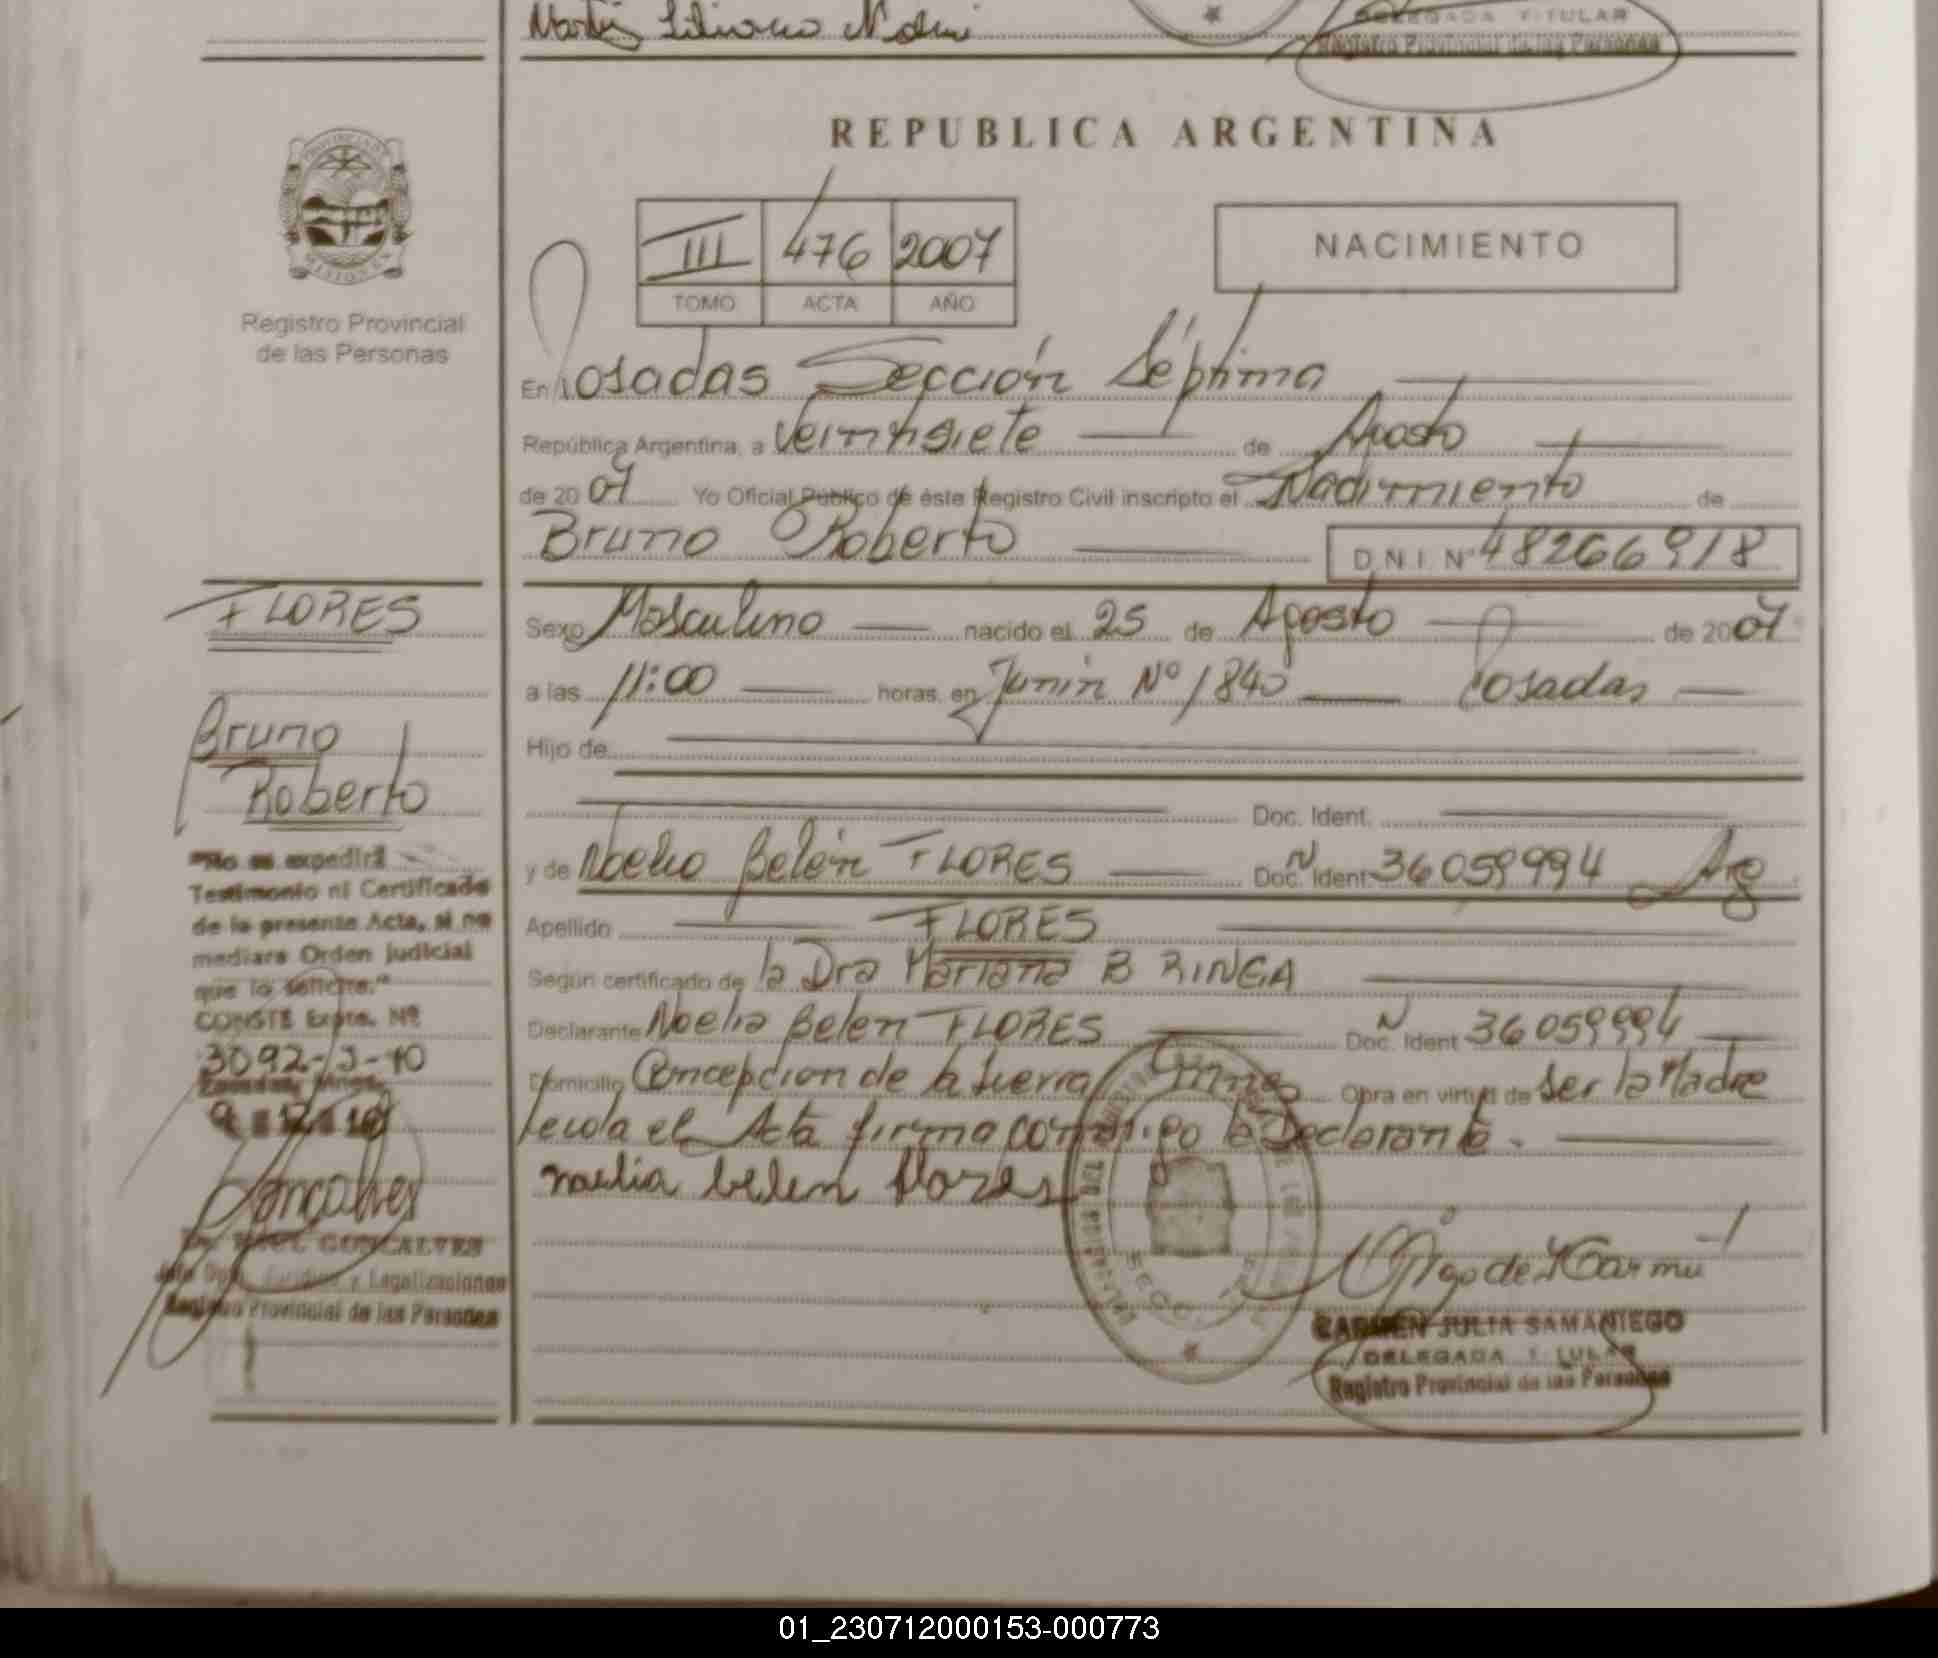 DELEGADA TITULAR
Registro Provincial de las Personas
REPUBLICA ARGENTINA
PROVINCIA DE MISIONES
III 476 2007
TOMO ACTA AÑO
NACIMIENTO
Registro Provincial
de las Personas
En Posadas Sección Séptima
República Argentina, a Veintisiete de Agosto
de 2007 Yo Oficial Público de éste Registro Civil inscripto el Nacimiento de
Bruno Roberto D.N.I. Nº 48266918
FLORES
Sexo Masculino nacido el 25 de Agosto de 2007
a las 11:00 horas, en Junín Nº 1840 Posadas
Bruno
Roberto
Hijo de
Doc. Ident.
y de Noelia Belén FLORES Doc. Ident. 36059994 Arg
Apellido FLORES
Según certificado de la Dra Mariana B RINGA
Declarante Noelia Belen FLORES Doc. Ident 36059994
Domicilio Concepcion de la Sierra Mnes Obra en virtud de ser la Madre
Leida el Acta firma conmigo la Declarante.
noelia belen flores
"No se expedirá
Testimonio ni Certificado
de la presente Acta, si no
mediare Orden Judicial
que lo solicite."
CONSTE Expte. Nº
3092-J-10
Posadas, Mnes.
Goncalves
Dr. RAUL GONCALVES
Registro Provincial de las Personas
CARMEN JULIA SAMANIEGO
DELEGADA TITULAR
Registro Provincial de las Personas
01_230712000153-000773